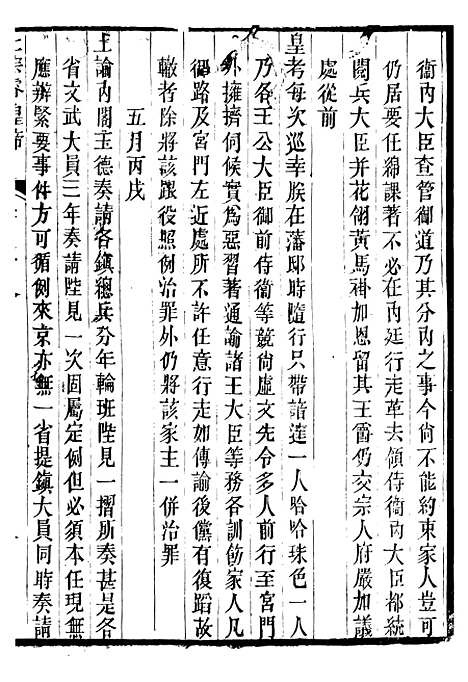 衞內大臣查管御道乃其分內之事今尙不能約束家人豈可
仍居要任綿課著不必在內廷行走革去領侍衞內大臣都統
閱兵大臣并花翎黃馬褂加恩留其王爵仍交宗人府嚴加議
處從前
皇考每次巡幸朕在藩邸時隨行只帶諳達一人哈哈珠色一人
乃各王公大臣御前侍衞等競尙虛文先令多人前行至宮門
外擁擠伺候實爲惡習著通諭諸王大臣等務各訓飭家人凡
御路及宮門左近處所不許任意行走如傳諭後儻有復蹈故
轍者除將該跟役照例治罪外仍將該家主一併治罪
五月丙戌
上諭內閣玉德奏請各鎭總兵分年輪班陛見一摺所奏甚是各
省文武大員三年奏請陛見一次固屬定例但必須本任現無
應辦緊要事件方可循例來京亦無一省提鎭大員同時奏請
仁宗睿皇帝